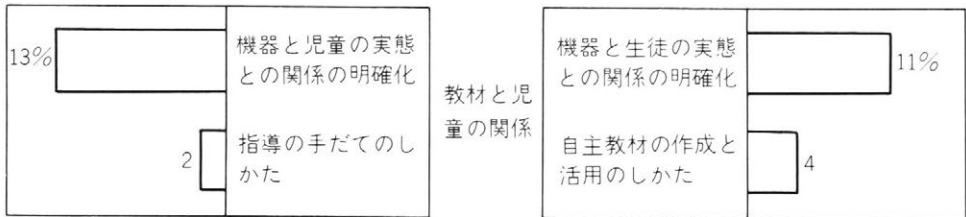 13%
機器と児童の実態
との関係の明確化
2
指導の手だてのし
かた
教材と児
童の関係
機器と生徒の実態
との関係の明確化
11%
自主教材の作成と
活用のしかた
4